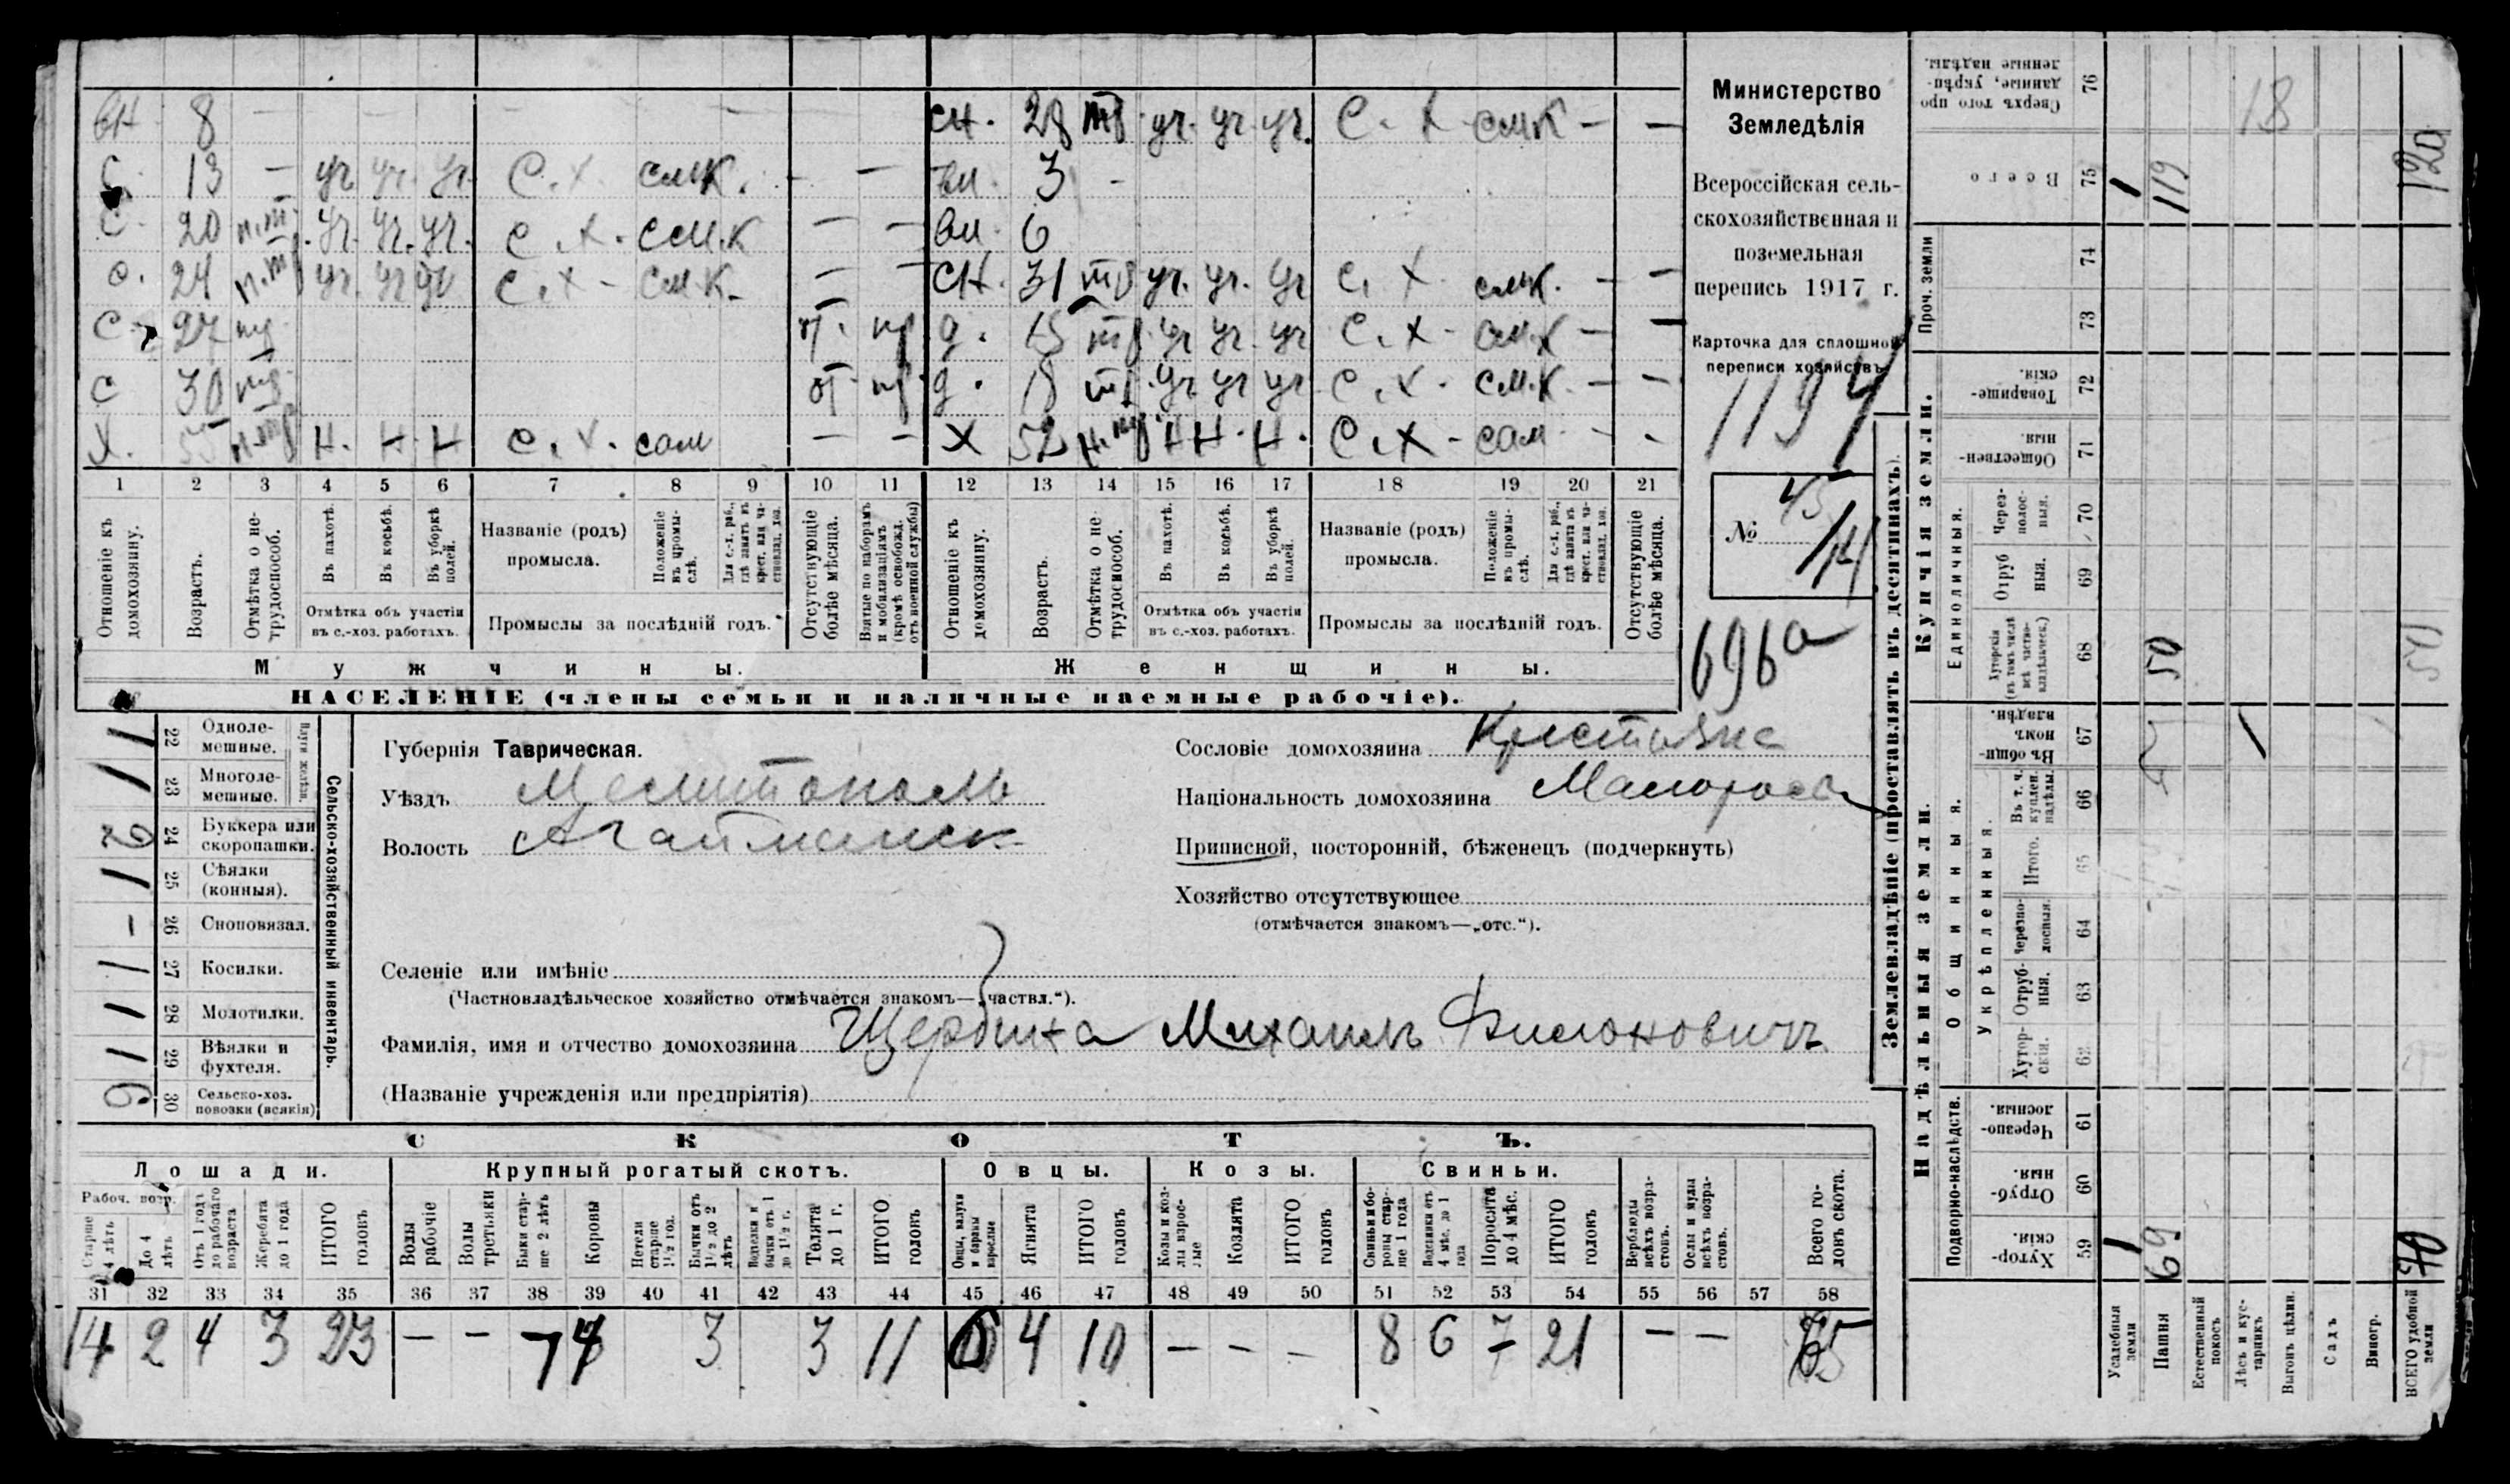 вн. 8 — сн. 28 тр. уч. уч. уч. С. Х. смк — —
С. 13 — уч уч. уч. С. Х. смк. — — вн. 3 —
С. 20 уч. уч. уч. С. Х. смк — — вн. 6
С. 24 уч. уч уч С. Х. смк. — — сн. 31 уч. уч. уч С. Х. смк. — —
С. 27 д. 15 уч уч. уч С. Х. смк — —
С 30 д. 18 уч уч уч С. Х. смк. — —
Х. 55 Н. Н Н С. Х. сам — — Х 52 Н Н. Н. С. Х. сам — -
1 2 3 4 5 6 7 8 9 10 11 12 13 14 15 16 17 18 19 20 21
Отношеніе къ домохозяину.
Возрастъ.
Отмѣтка о не-трудоспособ.
Въ пахотѣ.
Въ косьбѣ.
Въ уборкѣ полей.
Отмѣтка объ участіи
въ с.-хоз. работахъ.
Названіе (родъ)
промысла.
Положеніе въ промы-слѣ.
Для с.-х. раб., гдѣ занятъ въ крест. или ча-стновлад. хоз.
Промыслы за послѣдній годъ.
Отсутствующіе болѣе мѣсяца.
Взятые по наборамъ и мобилизаціямъ (кромѣ освобожд. отъ военной службы)
Отношеніе къ домохозяину.
Возрастъ.
Отмѣтка о не трудоспособ.
Въ пахотѣ.
Въ косьбѣ.
Въ уборкѣ полей.
Отмѣтка объ участіи
въ с.-хоз. работахъ.
Названіе (родъ)
промысла.
Положеніе въ промы-слѣ.
Для с.-х. раб., гдѣ занятъ въ крест. или ча-стновлад. хоз.
Промыслы за послѣдній годъ.
Отсутствующіе болѣе мѣсяца.
Мужчины. Женщины.
НАСЕЛЕНІЕ (члены семьи и наличные наемные рабочіе).
Министерство
Земледѣлія
Всероссійская сель-
скохозяйственная и
поземельная
перепись 1917 г.
Карточка для сплошной
переписи хозяйствъ
1194
45
№ 14
696а
Сельско-хозяйственный инвентарь.
Плуги желѣзн.
1 22 Однолемешные.
1 23 Многолемешные.
2 24 Буккера или скоропашки.
1 25 Сѣялки (конныя).
- 26 Сноповязал.
1 27 Косилки.
1 28 Молотилки.
1 29 Вѣялки и фухтеля.
30 Сельско-хоз. повозки (всякія)
Губернія Таврическая.
Уѣздъ Мелитополь
Волость Агайманск
Сословіе домохозяина Крестьянс
Національность домохозяина Малоросъ
Приписной, посторонній, бѣженецъ (подчеркнуть)
Хозяйство отсутствующее
(отмѣчается знакомъ—„отс.“).
Селеніе или имѣніе
(Частновладѣльческое хозяйство отмѣчается знакомъ—„частвл.“).
Фамилія, имя и отчество домохозяина Щербина Михаилъ Филоновичъ
(Названіе учрежденія или предпріятія)
СКОТЪ.
Лошади. Крупный рогатый скотъ. Овцы. Козы. Свиньи.
Рабоч. возр.
Старше 4 лѣтъ
До 4 лѣтъ
Отъ 1 года до рабочаго возраста
Жеребята до 1 года
ИТОГО головъ
Волы рабочіе
Волы третьяки
Быки стар-ше 2 лѣтъ
Коровы
Нетели старше 1½ год.
Бычки отъ 1½ до 2 лѣтъ
бычки отъ 1 до 1½ г.
Телята до 1 г.
ИТОГО головъ
Овцы, валухи и бараны взрослые
Ягнята
ИТОГО головъ
Козы и коз-лы взрос-лые
Козлята
ИТОГО головъ
Свиньи и бо-ровы стар-ше 1 года
Подсвинки отъ 4 мѣс. до 1 года
Поросята до 4 мѣс.
ИТОГО головъ
Верблюды всѣхъ возра-стовъ.
Ослы и мулы всѣхъ возра-стовъ.
Всего го-ловъ скота.
31 32 33 34 35 36 37 38 39 40 41 42 43 44 45 46 47 48 49 50 51 52 53 54 55 56 57 58
14 2 4 3 23 — - 3 3 11 6 4 10 — - - 8 6 7 21 — — 65
Землевладѣніе (проставлять въ десятинахъ).
Надѣльныя земли. Купчія земли. Проч. земли
Подворно-наслѣдств. Общинныя. Укрѣпленныя. Единоличныя.
Хутор-скія. 59
Отруб-ныя. 60
Черезпо-лосныя. 61
Хутор-скія. 62
Отруб-ныя. 63
Черезпо-лосныя. 64
Итого. 65
Въ т. ч. куплен. надѣлы. 66
Въ общи-номъ владѣн. 67
Хуторскія (въ томъ числѣ всѣ частно-владѣльческ.) 68
Отруб ныя. 69
Через-полос-ныя. 70
Обществен-ныя. 71
Товарище-скія. 72
73
74
Всего 75
Сверхъ того про даниые, укрѣп-ленные надѣлы. 76
Усадебныя земли 1 1
Пашня 69 50 119
Естественный покосъ
Лѣсъ и кус-тарникъ 18
Выгонъ цѣлин.
Садъ
Виногр.
ВСЕГО удобной земли 70 50 120